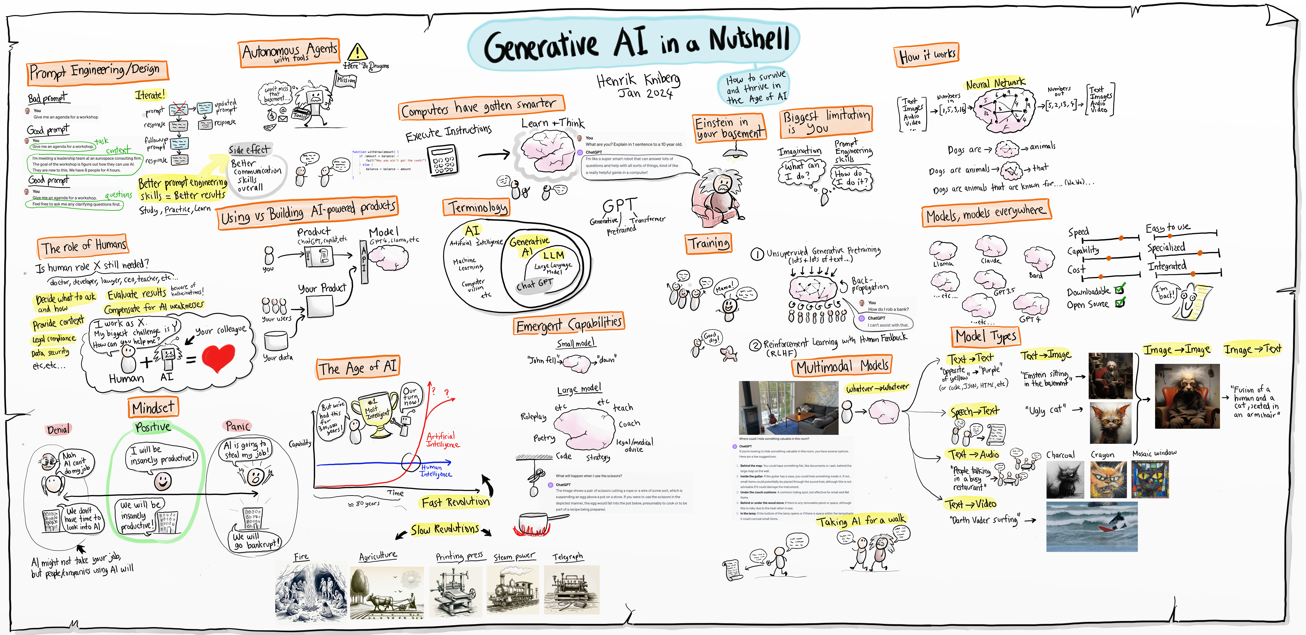 Generative AI in a Nutshell
Henrik Kniberg
Jan 2024
How to survive
and thrive in
the Age of AI
Prompt Engineering/Design
Bad prompt
You
Give me an agenda for a workshop.
Good prompt
You
Give me an agenda for a workshop.
task
context
I'm meeting a leadership team at an aurospace consulting firm.
The goal of the workshop is figure out how they can use AI.
They are new to this. We have 8 people for 4 hours.
Good prompt
You
Give me an agenda for a workshop.
Feel free to ask me any clarifying questions first.
questions
Iterate!
prompt
updated
prompt
response
response
followup
prompt
response
Side effect
Better
communication
skills
overall
Better prompt engineering
skills = Better results
Study, Practice, Learn
Autonomous Agents
with tools
Here Be Dragons
Mission
Won't miss
that
basement!
Tools
Computers have gotten smarter
Execute Instructions
Learn + Think
You
What are you? Explain in 1 sentence to a 10 year old.
ChatGPT
I'm like a super smart robot that can answer lots of
questions and help with all sorts of things, kind of like
a really helpful genie in a computer!
Einstein in
your basement
Biggest limitation
is YOU
Imagination
What can
I do?
Prompt
Engineering
skills
How do
I do it?
How it works
Neural Network
Text
Images
Audio
Video
...
Numbers
in
Numbers
out
[5, 2, 13, 9]
Text
Images
Audio
Video
...
Dogs are
animals
Dogs are animals
that
Dogs are animals that are known for....
Using vs Building AI-powered products
Product
ChatGPT, copilot, etc
Model
GPT4, Llama, etc
You
API
Your Product
Your users
Your data
Terminology
AI
Artificial intelligence
Machine
Learning
Computer
vision
etc
Generative
AI
LLM
Large Language
Model
Chat GPT
GPT
Generative
Pretrained
Transformer
Training
① Unsupervised Generative Pretraining
(lots + lots of text...)
Back-
propagation
Mama!
You
How do I rob a bank?
ChatGPT
I can't assist with that.
Good
dog!
② Reinforcement Learning with Human Feedback
(RLHF)
Models, models everywhere
Llama
Claude
Bard
GPT3.5
GPT 4
...etc
...etc...
Speed
Capability
Cost
Easy to use
Specialized
Integrated
Downloadable
Open Source
I'm
back!
The role of Humans
Is human role X still needed?
doctor, developer, lawyer, ceo, teacher, etc...
Decide what to ask
and how
Evaluate results
beware of
hallucinations!
Compensate for AI weaknesses
Provide context
Legal compliance
Data security
etc,etc...
I work as X.
My biggest challenge is Y
How can you help me?
Your colleague
Human
+
AI
=
Mindset
Denial
Positive
Panic
Nah
AI can't
do my job
I will be
insanely productive!
AI is going to
steal my job!
We don't
have time to
look into AI
We will be
insanely
productive!
We will
go bankrupt!
AI might not take your job,
but people/companies using AI will
The Age of AI
Capability
But we've
had this
for
years!
#1
Most
Intelligent
Our
turn
now!
?
?
Artificial
Intelligence
Human
Intelligence
Time
Fast Revolution
Slow Revolutions
Fire
Agriculture
Printing press
Steam power
Telegraph
Emergent Capabilities
Small model
"John fell"
"down"
Large model
etc
etc
Roleplay
teach
Coach
Poetry
legal/medical
advice
Code
strategy
What will happen when I use the scissors?
ChatGPT
The image shows a pair of scissors cutting a rope or a wire of some sort, which is
suspending an egg above a pan on a stove. If you were to use the scissors in the
depicted manner, the egg would fall into the pot below, presumably to cook or to be
part of a recipe being prepared.
Multimodal Models
whatever→whatever
Where could I hide something valuable in this room?
ChatGPT
Taking AI for a walk
Model Types
Text→Text
"Opposite
of yellow"
→
"Purple"
(or code, JSON, HTML, etc)
Text→Image
"Einstein sitting
in the basement"
"Ugly cat"
Image→Image
Image→Text
"Fusion of a
human and a
cat, seated in
an armchair"
Speech→Text
Text→Audio
"People talking
in a busy
restaurant"
Charcoal
Crayon
Mosaic window
Text→Video
"Darth Vader surfing"